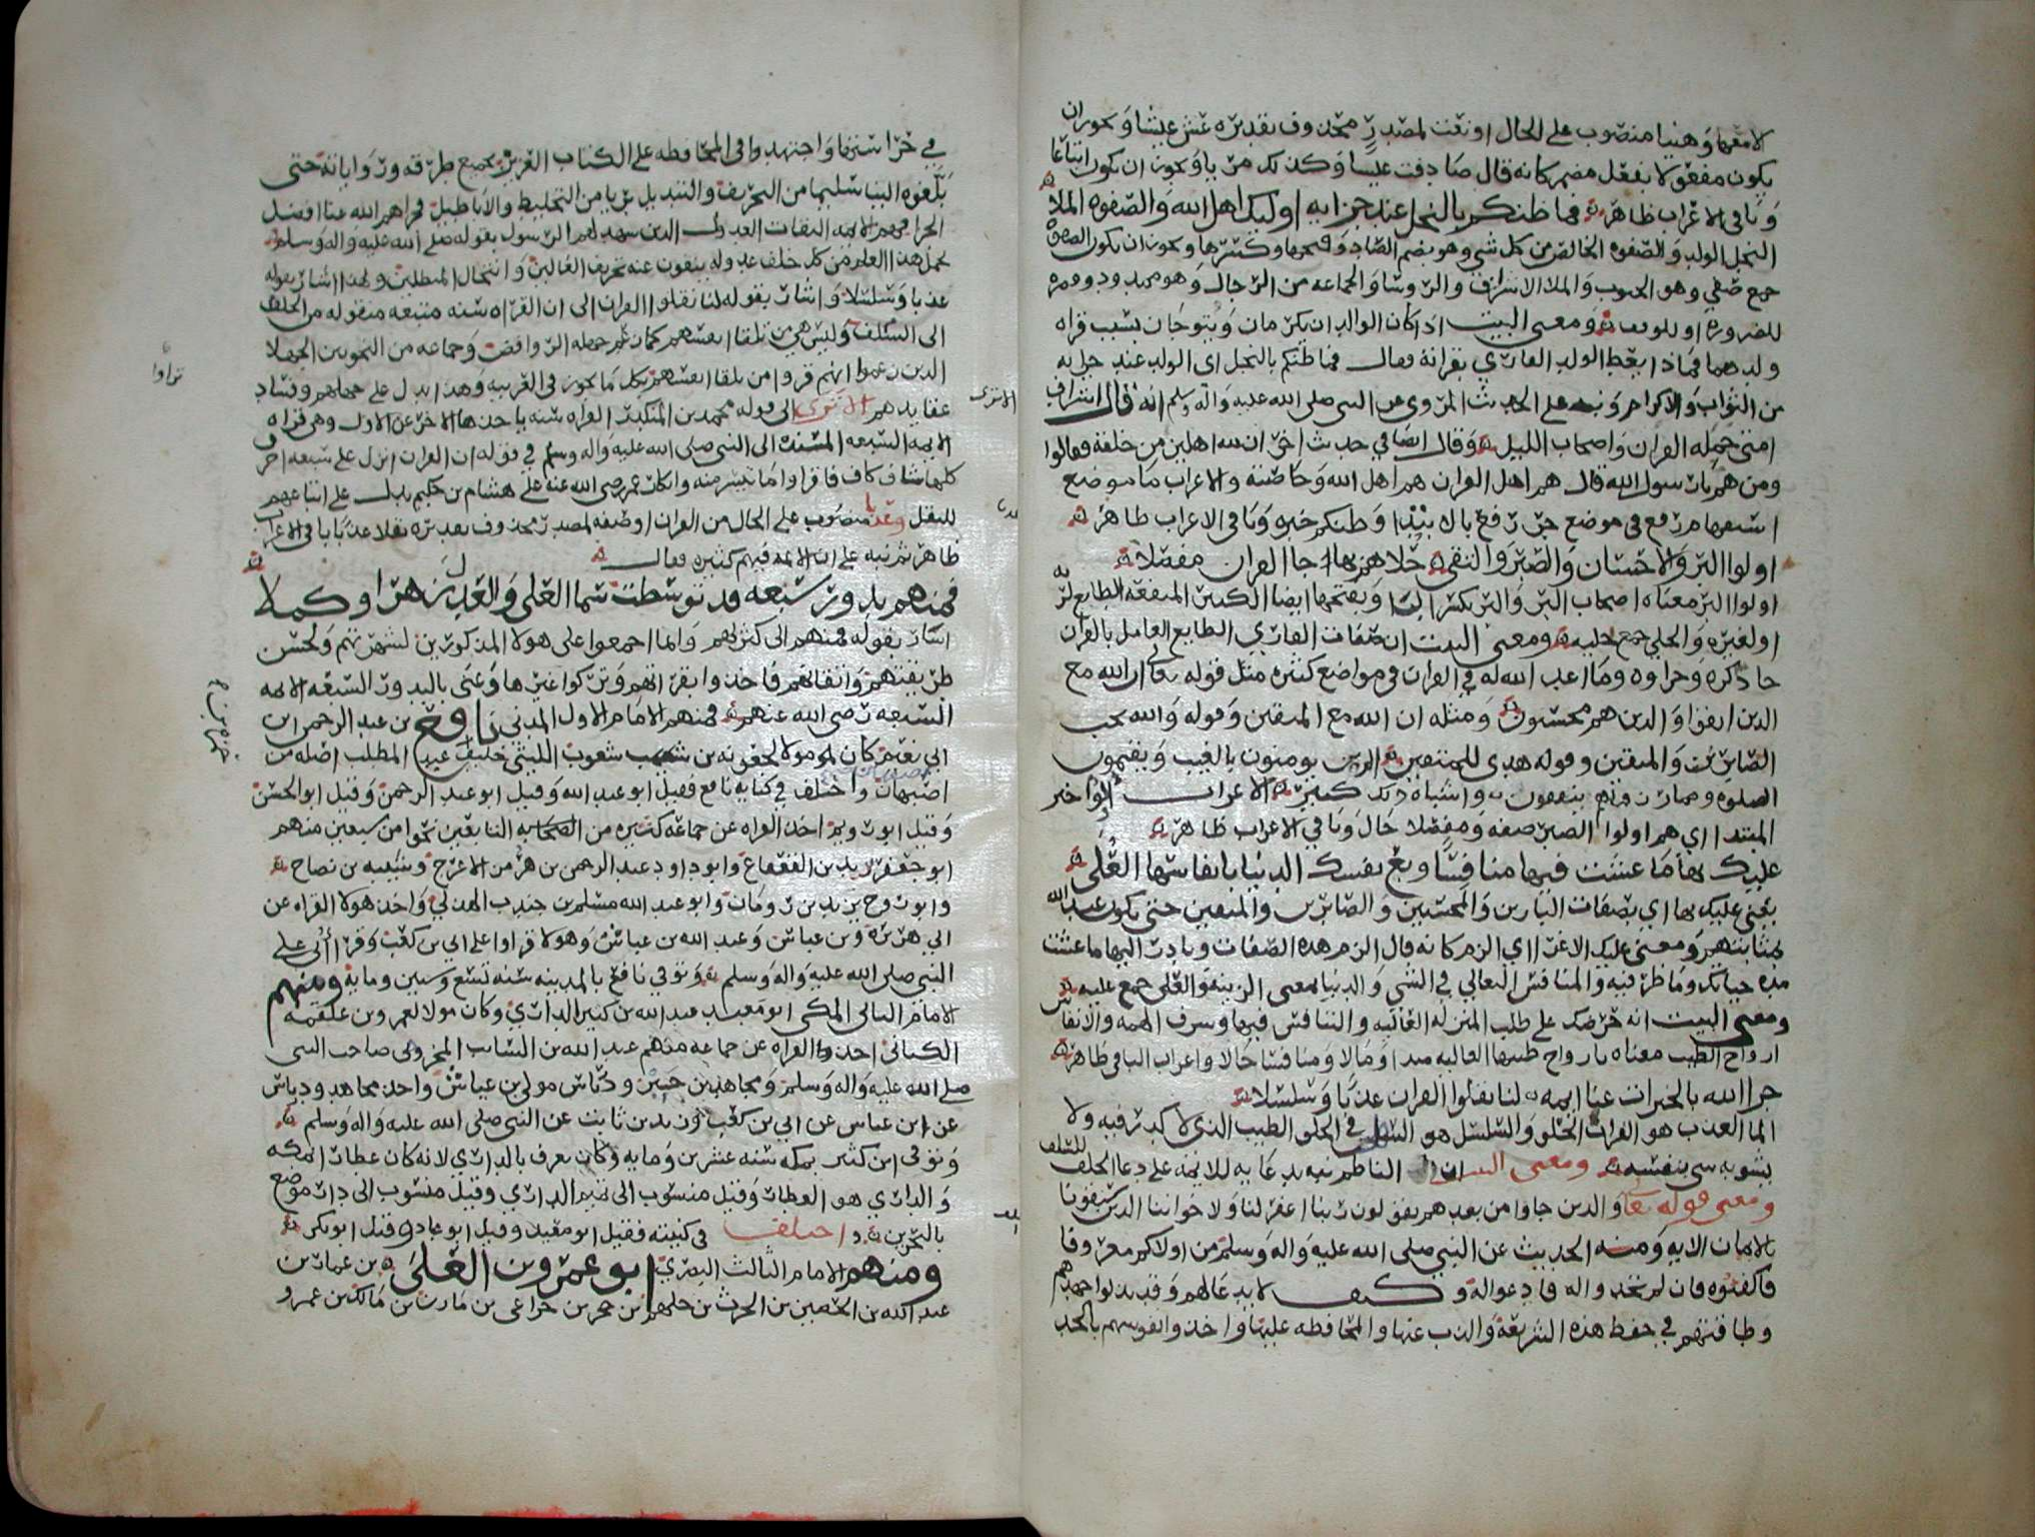 لا معها وهنيا منصوب على الحال او نعت لمصدر محذوف تقديره عش عيشا ويجوز ان
يكون مفعولا بفعل مضمر كانه قال صادفت عيشا وكذلك مريا ويجوز ان يكون اتباعا
وباقي الاعراب ظاهر فما ظنكم بالنجل عند جزايه اوليك اهل الله والصفوه الملا
النجل الولد والصفوه الخالص من كل شي وهو بضم الصاد وفتحها وكسرها ويجوز ان يكون الصفوه
جمع صفي وهو المحبوب والملا الاشراف والروسا والجماعه من الرجال وهو مهموز
للضروره او للوقف ومعنى البيت اذا كان الوالدان يكرمان ويتوجان بسبب قراه
ولدهما فماذا يعطى الولد القاري بقرانه فقال فما ظنكم بالنجل اي الولد عند جزايه
من الثواب والاكرام ونبه على الحديث المروي عن النبي صلى الله عليه واله وسلم انه قال اشراف
امتي حمله القران واصحاب الليل وقال ايضا في حديث اخر ان لله اهلين من خلقه فقالوا
ومن هم يا رسول الله قال هم اهل القران هم اهل الله وخاصته والاعراب ما موضع
اسمها مرفع في موضع جر رفع بالابتدا وظنكم خبره وباقي الاعراب ظاهر
اولوا البر والاحسان والصبر والتقى حلاهم بها جا القران مفصلا
اولوا البر معناه اصحاب البر والبر بكسر البا وبفتحها ايضا الكثير المنفعه الطايع لله
او لغيره والحلي جمع حليه ومعنى البيت ان صفات القاري الطايع العامل بالقران
ما ذكره وجزاوه وما اعد الله له في القران في مواضع كثيره مثل قوله تعالى ان الله مع
الذين اتقوا والذين هم محسنون ومثله ان الله مع المتقين وقوله والله يحب
الصابرين والمتقين وقوله هدى للمتقين الذين يومنون بالغيب ويقيمون
الصلوه ومما رزقناهم ينفقون واشباه ذلك كثير الاعراب اولوا خبر
المبتدا اي هم اولوا الصبر صفه ومفصلا حال وباقي الاعراب ظاهر
عليك بها ما عشت فيها منافسا وبع نفسك الدنيا بانفاسها العلى
يعني عليك بها اي بصفات البارين والمحسنين والصابرين والمتقين حتى يكون عند الله
بمثابتهم ومعنى عليك الاغرا اي الزم كانه قال الزم هذه الصفات وبادر اليها ما عشت
مده حياتك وما ظرفيه والمنافس التعالي في الشي والدنيا بمعنى الزينه والعلى جمع عليه
ومعنى البيت انه حرضك على طلب المنزله العاليه والتنافس فيها وشرف الهمه والانفاس
ارواح الطيب معناه بارواح طيبها العاليه مبدا وما لا ومنافسا حالا واعراب الباقي ظاهر
جزا الله بالخيرات عنا ايمه لنا نقلوا القران عذبا وسلسلا
الما العذب هو الفرات الحلو والسلسل هو السهل في الحلق الطيب الذي لا كدر فيه ولا
يشوبه شي بنفسه ومعنى البيت ان الناظم نبه بدعايه للايمه على دعا الخلف للسلف
ومعنى قوله تعالى والذين جاوا من بعدهم يقولون ربنا اغفر لنا ولاخواننا الذين سبقونا
بالايمان الايه ومنه الحديث عن النبي صلى الله عليه واله وسلم من اولاكم معروفا
فاكفوه فان لم تجدوا له فادعوا له وكيف لا يدعا لهم وقد بذلوا جهدهم
وطاقتهم في حفظ هذه الشريعه والذب عنها والمحافظه عليها واخذوا نفوسهم بالجد
في خزاستها واجتهدوا في المحافظه على الكتاب العزيز بجميع طرقه ورواياته حتى
بلغوه الينا سليما من التحريف والتبديل عريا من التخليط والاباطيل فجزاهم الله عنا افضل
الجزا فهم الايمه الثقات العدول الذين شهد لهم الرسول بقوله صلى الله عليه واله وسلم
يحمل هذا العلم من كل خلف عدوله ينفون عنه تحريف الغالين وانتحال المبطلين ولهذا اشار بقوله
عذبا وسلسلا واشار بقوله لنا نقلوا القران الى ان القراه سنه متبعه منقوله من الخلف
الى السلف وليس هي من تلقا انفسهم كما زعم جهله الروافض وجماعه من النحويين الجهلا
الذين زعموا انهم قروا من تلقا انفسهم بكل ما يجوز في العربيه وهذا يدل على جهلهم وفساد
عقايدهم الا ترى الى قوله محمد بن المنكدر القراه سنه ياخذها الاخر عن الاول وهي قراه
الايمه السبعه المسنده الى النبي صلى الله عليه واله وسلم في قوله ان القران انزل على سبعه احرف
كلها شاف كاف فاقراوا ما تيسر منه وانكار عمر رضي الله عنه على هشام بن حكيم يدلك على اتباعهم
للنقل وعذبا منصوب على الحال من القران او صفه لمصدر محذوف تقديره نقلا عذبا وباقي الاعراب
ظاهر ثم نبه على ان الايمه فيهم كثيره فقال
فمنهم بدور سبعه قد توسطت سما العلى والعدل زهرا وكملا
اشار بقوله فمنهم الى كثرتهم وانما اجمعوا على هولا المذكورين لشهرتهم ولحسن
طريقتهم واتقانهم فاخذوا بقراتهم وتركوا غيرها وعنى بالبدور السبعه الايمه
السبعه رضي الله عنهم فمنهم الامام الاول المدني نافع بن عبد الرحمن ابن
ابي نعيم كان هو مولا لجعونه بن شعوب الليثي حليف عبد المطلب اصله من
اصبهان واختلف في كنايه نافع فقيل ابو عبد الله وقيل ابو عبد الرحمن وقيل ابو الحسن
وقيل ابو رويم اخذ القراه عن جماعه كثيره من الصحابه التابعين نحوا من سبعين منهم
ابو جعفر يزيد بن القعقاع وابو داود عبد الرحمن بن هرمز الاعرج وشيبه بن نصاح
وابو روح يزيد بن رومان وابو عبد الله مسلم بن جندب الهذلي واخذ هولا القراه عن
ابي هريره وبن عباس وعبد الله بن عياش وهولا قراوا على ابي بن كعب وقرا ابي على
النبي صلى الله عليه واله وسلم وتوفي نافع بالمدينه سنه تسع وستين ومايه ومنهم
الامام الثاني المكي ابو معبد عبد الله بن كثير الداري وكان مولا لعمرو بن علقمه
الكناني اخذ القراه عن جماعه منهم عبد الله بن السايب المخزومي صاحب النبي
صلى الله عليه واله وسلم ومجاهد بن جبير ودرباس مولى بن عباس واخذ مجاهد ودرباس
عن ابن عباس عن ابي بن كعب وزيد بن ثابت عن النبي صلى الله عليه واله وسلم
وتوفي ابن كثير بمكه سنه عشرين ومايه وكان يعرف بالداري لانه كان عطارا بمكه
والداري هو العطار وقيل منسوب الى تميم الداري وقيل منسوب الى دارين موضع
بالبحرين واختلف في كنيته فقيل ابو معبد وقيل ابو عباد وقيل ابو بكر
ومنهم الامام الثالث البصري ابو عمرو بن العلى بن عمار بن
عبد الله بن الحصين بن الحرث بن جلهم بن حجر بن خزاعي بن مازن بن مالك بن عمرو